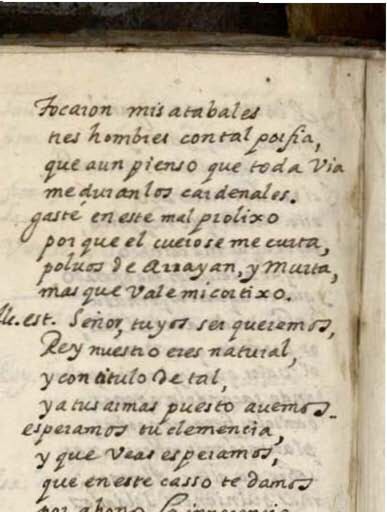 Tocaron mis atabales
tres hombres con tal porfia,
que aun pienso que toda Via
me duran los cardenales.
gastè en este mal prolixo
por que el cuero se me curta,
poluos de Arrayan, y Murta,
mas que Vale mi cortixo.
Me. est. Señor, tuyos ser queremos,
Rey nuestro eres natural,
y con titulo de tal,
ya tus armas puesto auemos.
esperamos tu clemencia,
y que Veas esperamos,
que en este casso te damos
por abono la inocencia